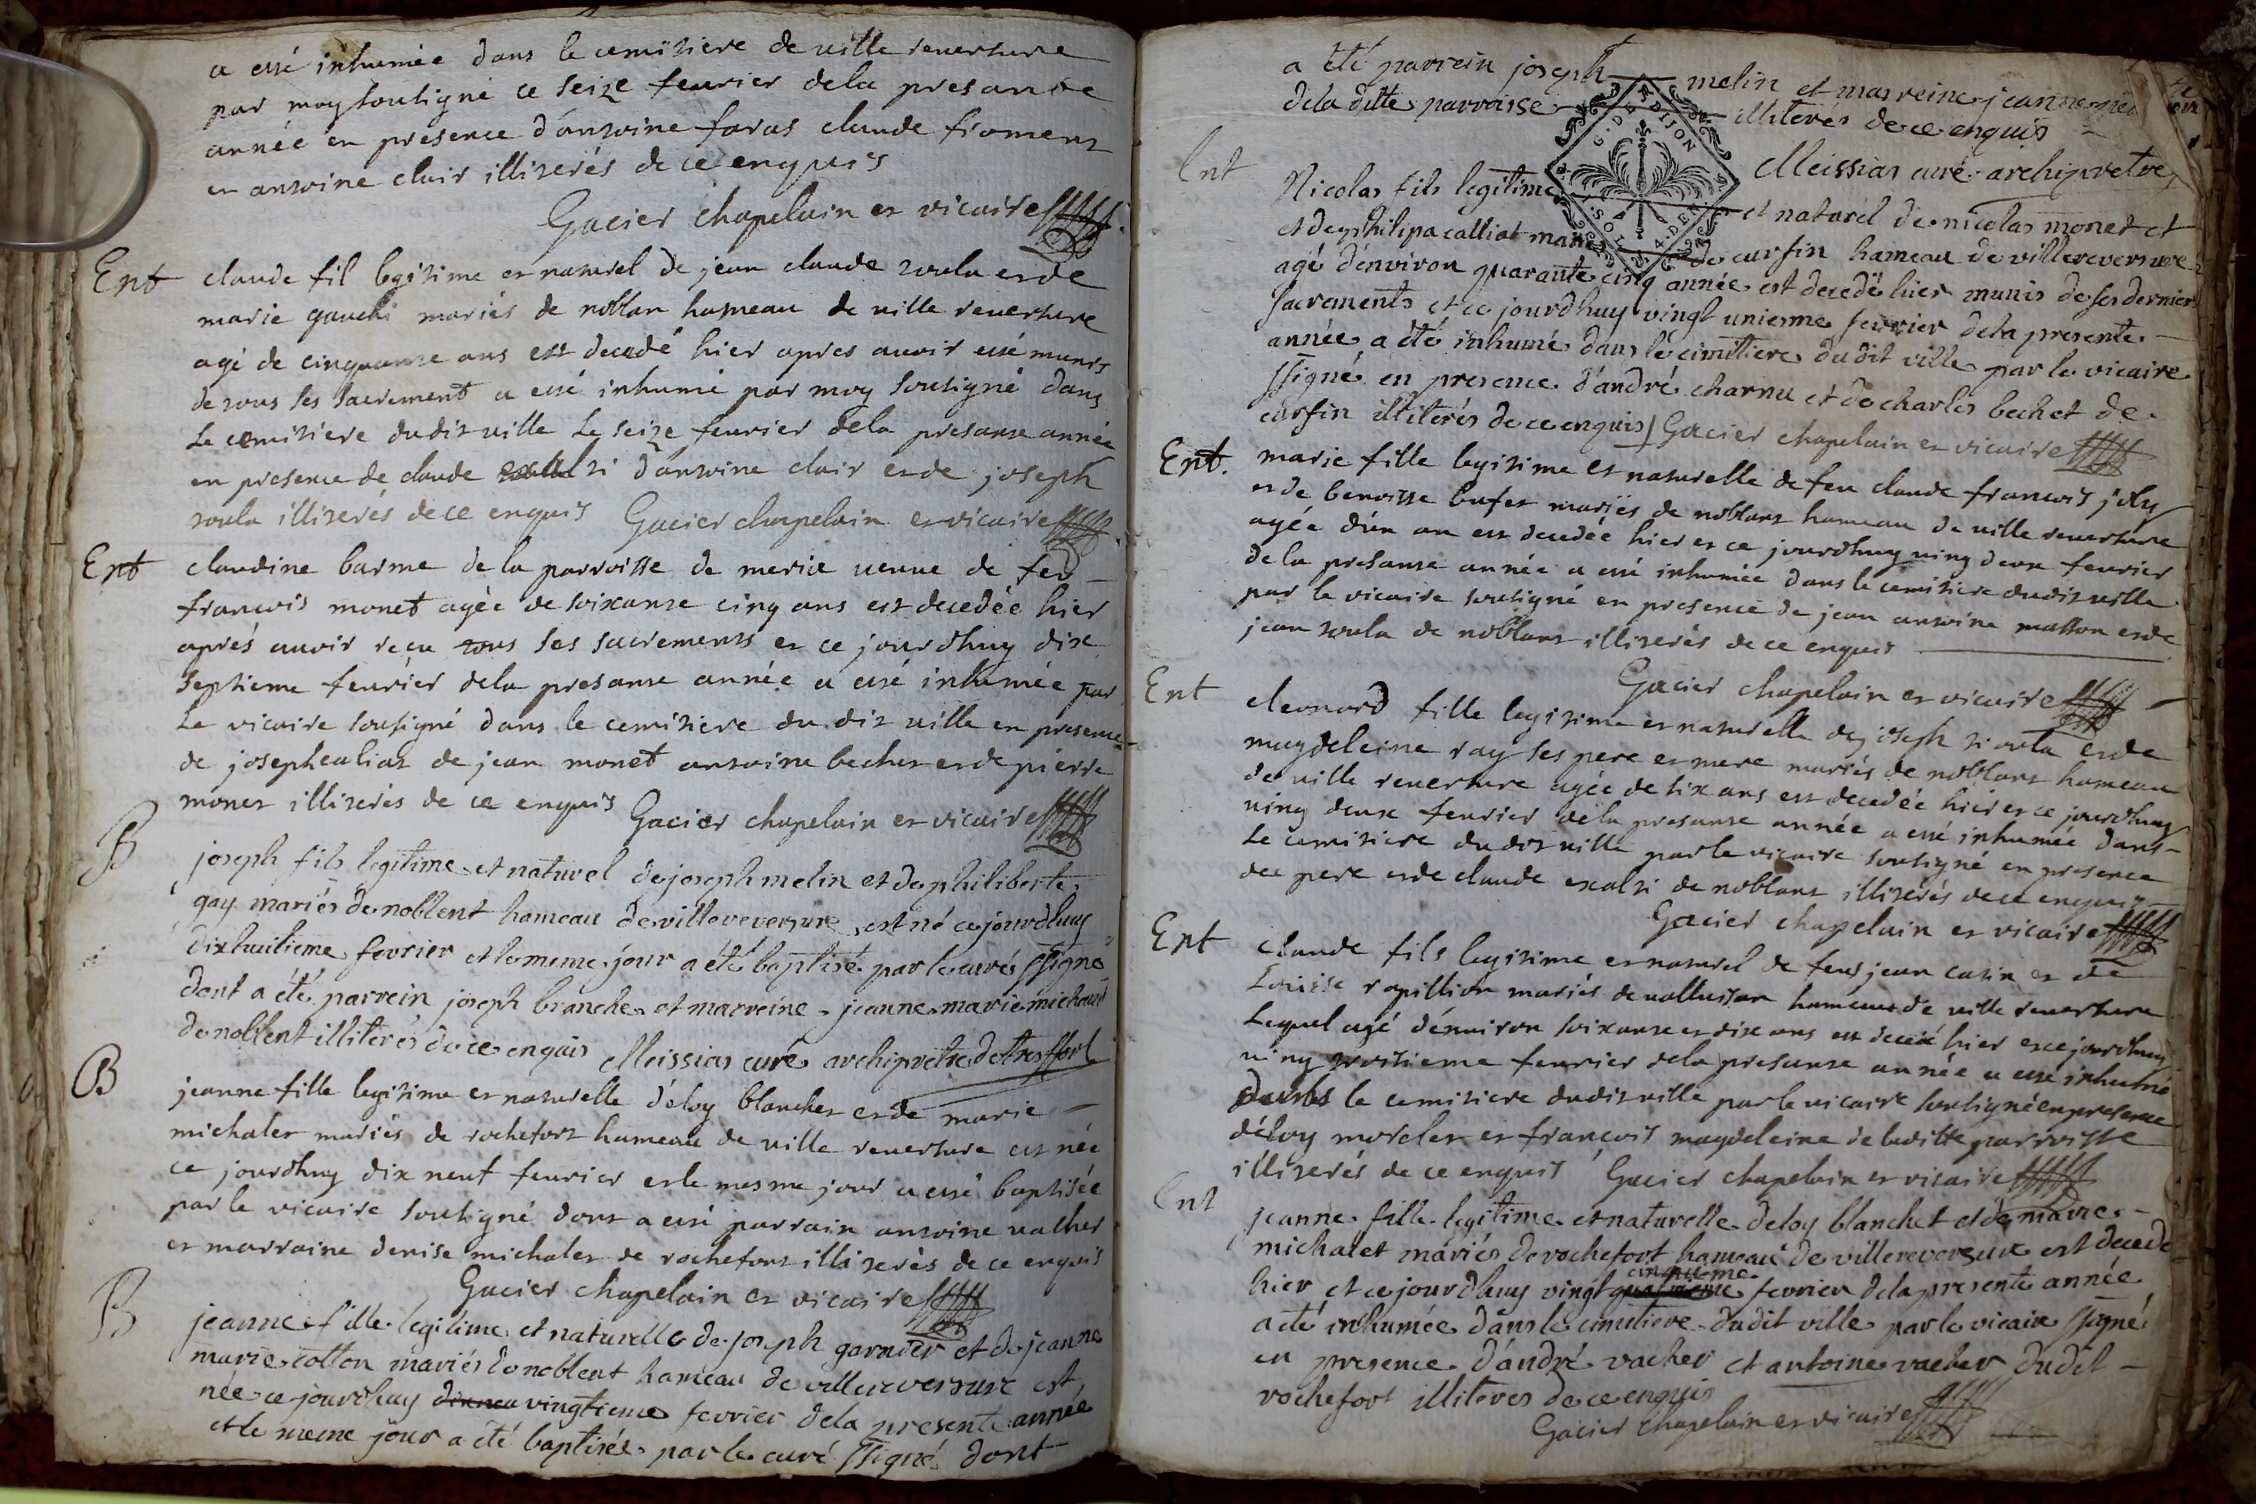 a esté inhumée dans le cemitiere de ville reversure
par moy soutigné ce seize fevrier dela presante
année en presence d'antoine faras claude froment
et antoine clair illiterés de ce enquis
Gacier chapelain et vicaire
Ent
claude fil legitime et naturel de jean claude toula et de
marie gauchi mariés de noblan hameau de ville reversure
agé de cinquante ans est decedé hier apres avoir esté munis
de tous ses sacrement a esté inhumé par moy soutigné dans
Le cemitiere dudit ville Le seize fevrier dela presante année
en presence de claude d'antoine clair et de joseph
toula illiterés de ce enquis Gacier chapelain et vicaire
Ent
claudine barme de la parroisse de meria veuve de feu
francois monet agée de soixante cinq ans est decedée hier
aprés avoir reçu tous ses sacrements et ce jourdhuy dix
septieme fevriér dela presante année a esté inhumée par
Le vicaire soutigné dans le cemitiere du dit ville en presence
de joseph caliat de jean monet antoine bechet et de piérre
monet illiterés de ce enquis Gacier chapelain et vicaire
B
joseph fils legitime et naturel de joseph melin et de philiberte
gay mariés de noblent hameau de villereversure est né ce jourdhuy
dixhuitieme fevrier et le meme jour a été baptisé par le curé ssigné
dont a été parrein joseph branche et marreine jeanne marie michaud
de noblent illiterés de ce enquis Meissiat curé archipretre de treffort
B
jeanne fille legitime et naturelle d'éloy blanchet et de marie
michalet mariés de rochefort hameau de ville reversure est née
ce jourdhuy dix neuf fevrier et le mesme jour a esté baptisée
par le vicaire soutigné dont a esté parrain antoine vacher
et marraine denise michalet de rochefort illiterés de ce enquis
Gacier chapelain et vicaire
B
jeanne fille legitime et naturelle de joseph garnier et de jeanne
marie cotton mariés de noblent hameau de villereversure est
née ce jourdhuy vingtieme fevrier dela presente année
et le meme jour a été baptisée par le curé ssigné dont
a été parrein joseph melin et marreine jeanne
dela ditte parroisse illiterés de ce enquis
Meissiat curé archipretre
G. DE DIJON
Ent
Nicolas fils legitime et naturel de nicolas monet et
et de philipa calliat mariés de curfin hameau de villereversure
agé d'environ quarante cinq année est decedé hier munis de ses dernier
sacrements et ce jourdhuy vingt unieme fevrier dela presente
année a été inhumé dans le cimitiere dudit ville par le vicaire
ssigné en presence d'andré charnu et de charles bechet de
curfin illiterés de ce enquis Gacier chapelain et vicaire
Ent.
marie fille legitime et naturelle de feu claude francois joly
et de benoisse bufet mariés de noblant hameau de ville reversure
agée d'un an est decedée hier et ce jourdhuy ving deux fevrier
de la presante année a esté inhumée dans le cemitiere dudit ville
par le vicaire soutigné en presence de jean antoine matton et de
jean toula de noblant illiterés de ce enquis
Gacier chapelain et vicaire
Ent
cleonard fille legitime et naturelle de joseph et de
magdeleine ray ses pere et mere mariés de noblant hameau
de ville reversure agée de six ans est decedée hier et ce jourdhuy
ving deux fevrier dela presante année a esté inhumée dans
Le cemitiere dudit ville par le vicaire soutigné en presence
dee pere et de claude de noblant illiterés de ce enquis
Gacier chapelain et vicaire
Ent
claude fils legitime et naturel de feu jean catin et de
Louise rapillion mariés de hameau de ville reversure
Lequel agé dénviron soixante et dix ans est decedé hier et ce jourdhuy
ving troitieme fevrier dela presante année a esté inhumé
dans le cemitiere dudit ville par le vicaire soutigné en presence
déloy morclet et françois magdeleine de laditte parroisse
illiterés de ce enquis Gacier chapelain et vicaire
Ent
jeanne fille legitime et naturelle deloy blanchet et de marie
michalet mariés de rochefort hameau de villereversure est decedé
hier et ce jourdhuy vingt cinquieme fevrier dela presente année
a été inhumée dans le cimitiere dudit ville par le vicaire ssigné
en presence d'andré vacher et antoine vacher dudit
rochefort illiterés de ce enquis
Gacier chapelain et vicaire